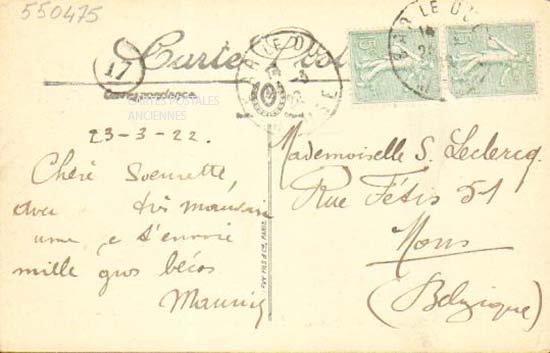 550475
Carte Postale
17
Correspondance
CARTES POSTALES
ANCIENNES
BAR LE DUC
23-3-22.
Chère Soeurette,
avec
une je t'envoie
mille gros bécos
Mademoiselle S. Leclercq.
Rue Fétis 51
Mons
(Belgique)